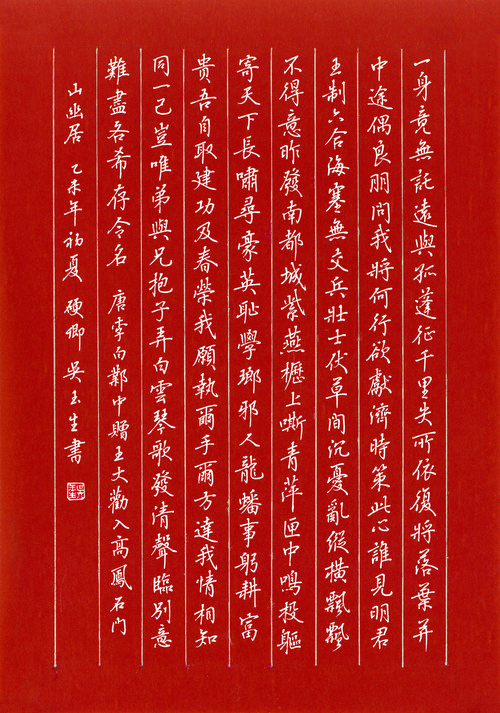 一身竟無託遠與孤蓬征千里失所依復將落葉并
中途偶良朋問我將何行欲獻濟時策此心誰見明君
王制六合海塞無交兵壯士伏草間沉憂亂縱橫飄飄
不得意昨發南都城紫燕櫪上嘶青萍匣中鳴投軀
寄天下長嘯尋豪英恥學瑯邪人龍蟠事躬耕富
貴吾自取建功及春榮我願執爾手爾方達我情相知
同一己豈唯弟與兄抱子弄白雲琴歌發清聲臨別意
難盡各希存令名 唐李白鄴中贈王大勸入高鳳石門
山幽居 乙未年初夏 硬卿 吳玉生書